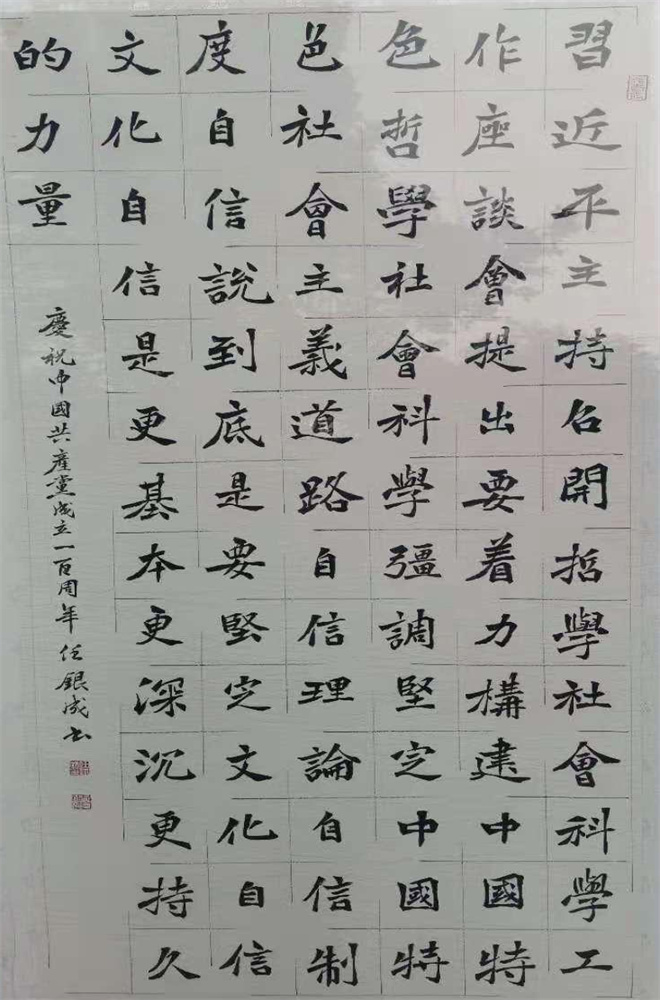 習近平主持召開哲學社會科學工
作座談會提出要着力構建中國特
色哲學社會科學彊調堅定中國特
色社會主義道路自信理論自信制
度自信說到底是要堅定文化自信
文化自信是更基本更深沉更持久
的力量
慶祝中國共產黨成立一百周年任銀成書